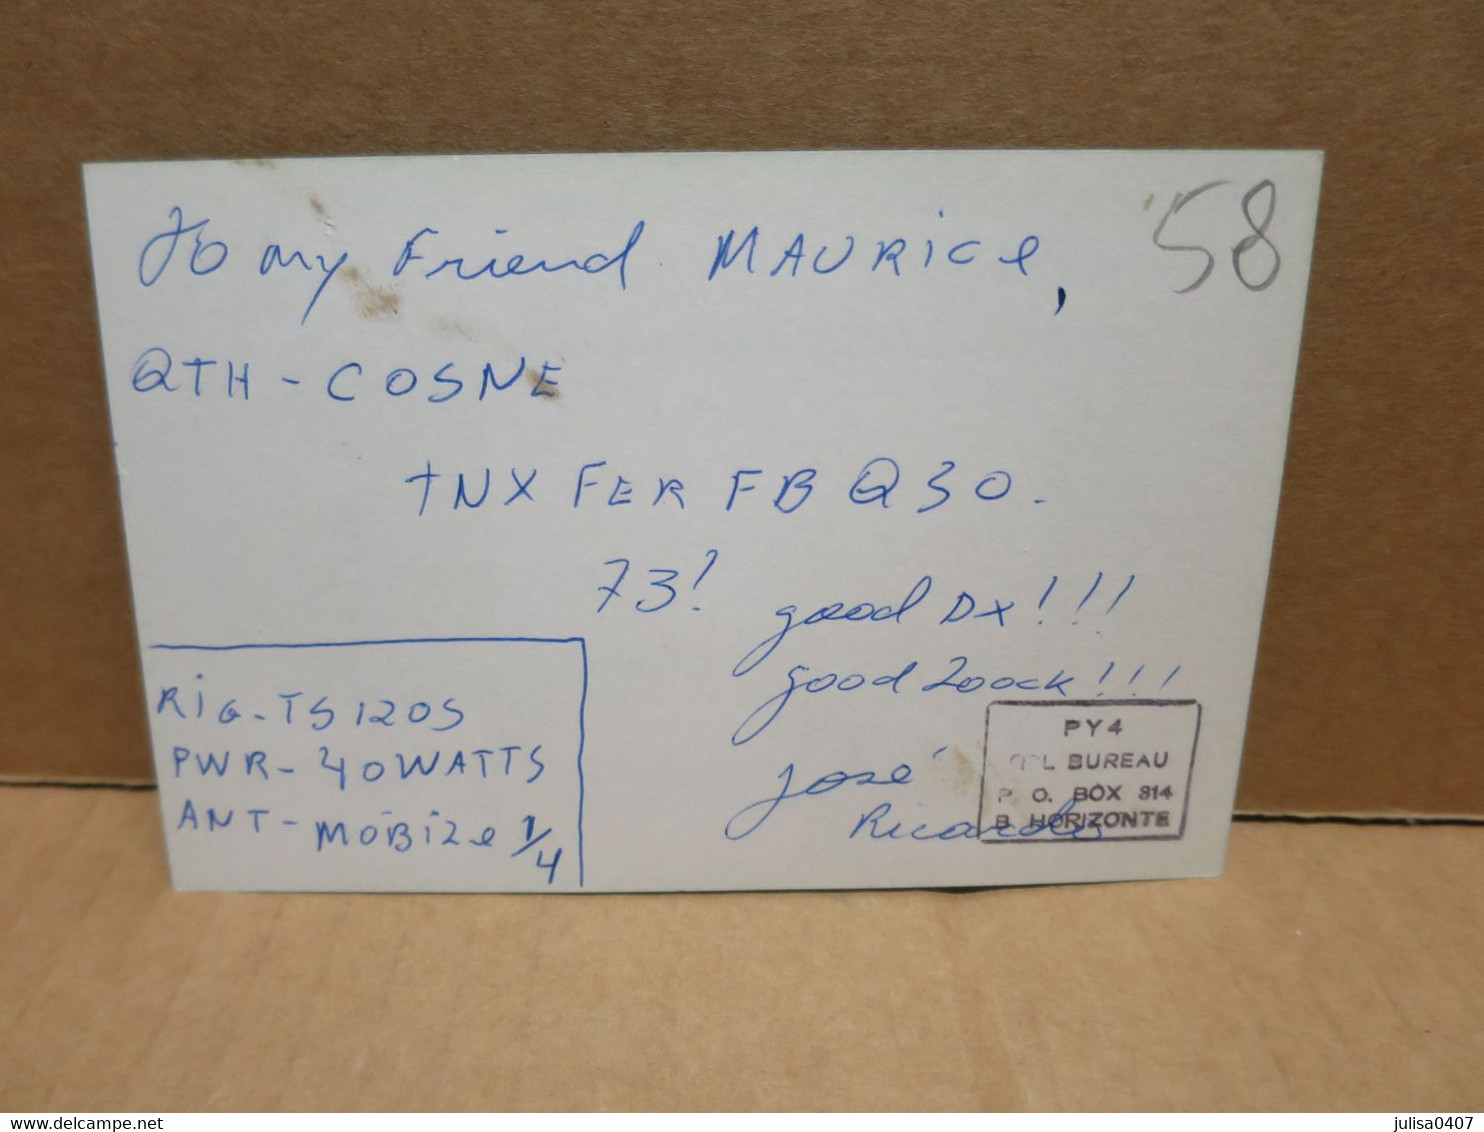 To my Friend MAURICE,
58
QTH - COSNE
TNX FER FB QSO.
73! good DX!!!
good Loock!!!
RIG - TS120S
PWR - 40WATTS
ANT - MOBILE 1/4
José
Ricardo
PY4
QSL BUREAU
P. O. BOX 314
B. HORIZONTE
www.delcampe.net
julisa0407